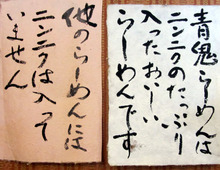 青鬼らーめんは
ニンニクのたっぷり
入ったおいしい
らーめんです
他のらーめんには
ニンニクは入って
いません